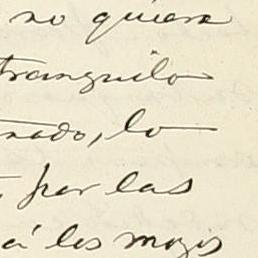 no quiera
tranquilo
nado, lo
por las
á los mozos